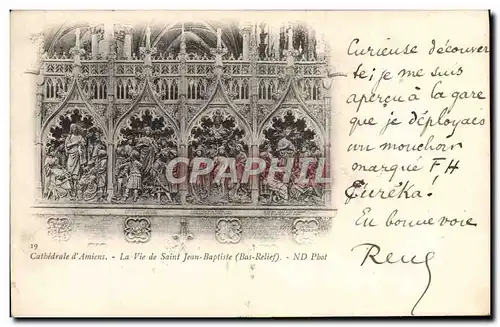 Curieuse découver
te; je me suis
aperçu à la gare
que je déployais
un mouchoir
marqué FH
Eurêka!
En bonne voie
René
CPARAMA.COM
19
Cathédrale d'Amiens. - La Vie de Saint Jean-Baptiste (Bas-Relief). - ND Phot